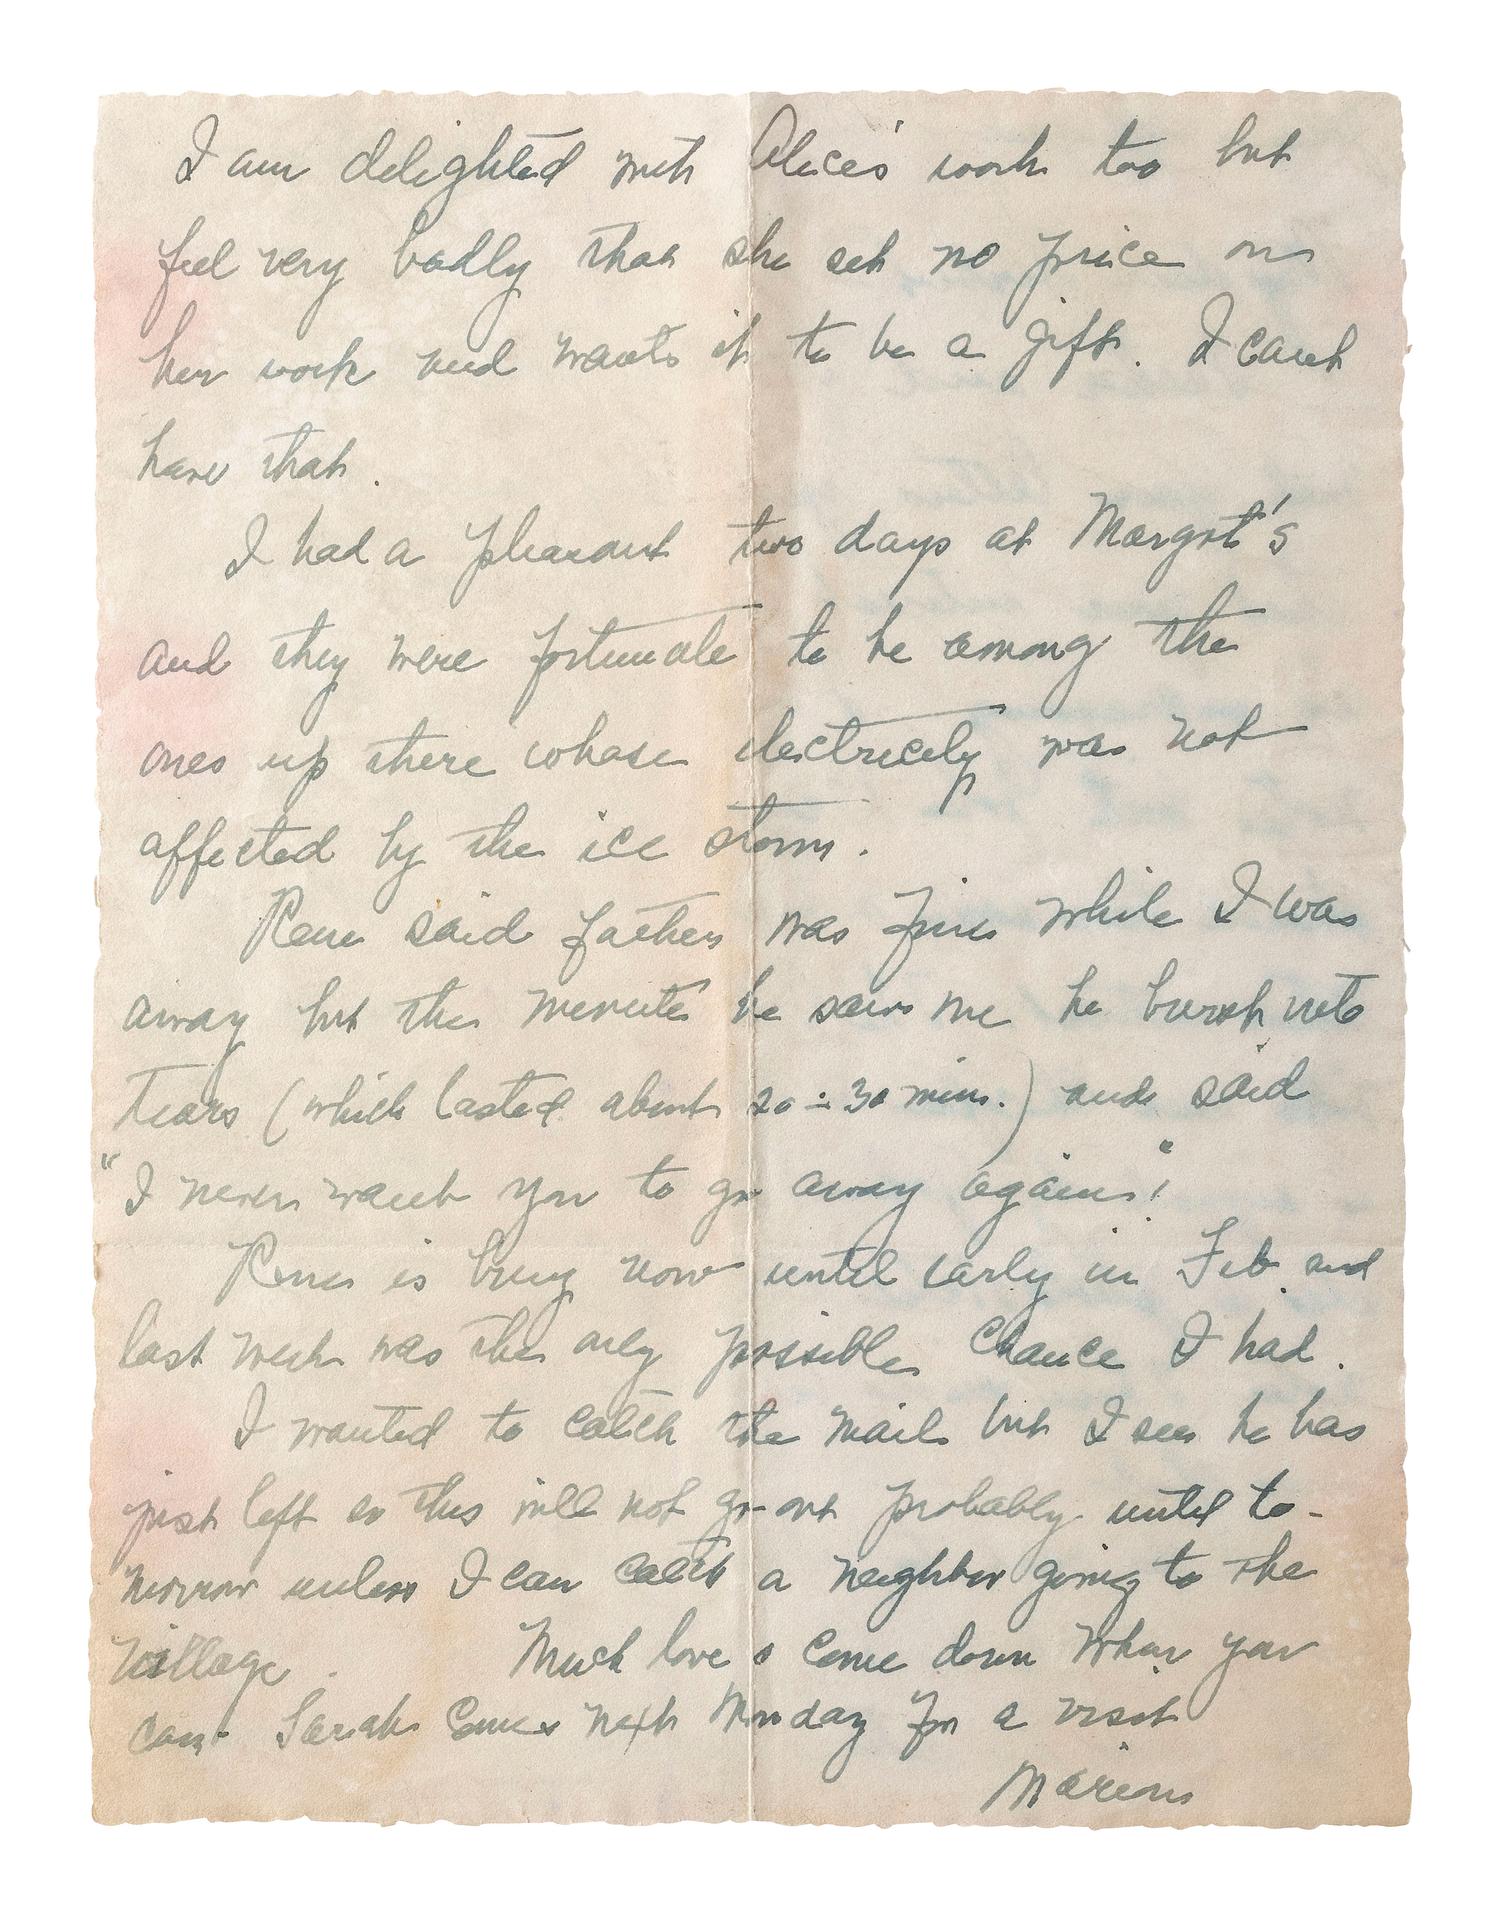 I am delighted with Alice's work too but
feel very badly that she set no price on
her work and wants it to be a gift. I can't
have that.
I had a pleasant two days at Margot's
and they were fortunate to be among the
ones up there whose electricity was not
affected by the ice storm.
said father was fine while I was
away but the minute he saw me he burst into
tears (which lasted about 20-30 mins.) and said
"I never want you to go away again!"
is busy now until early in Feb. and
last week was the only possible chance I had.
I wanted to catch the mail but I see he has
just left so this will not go out probably until to-
morrow unless I can catch a neighbor going to the
village. Much love & come down when you
can - Sarah comes next Monday for a visit
Marion